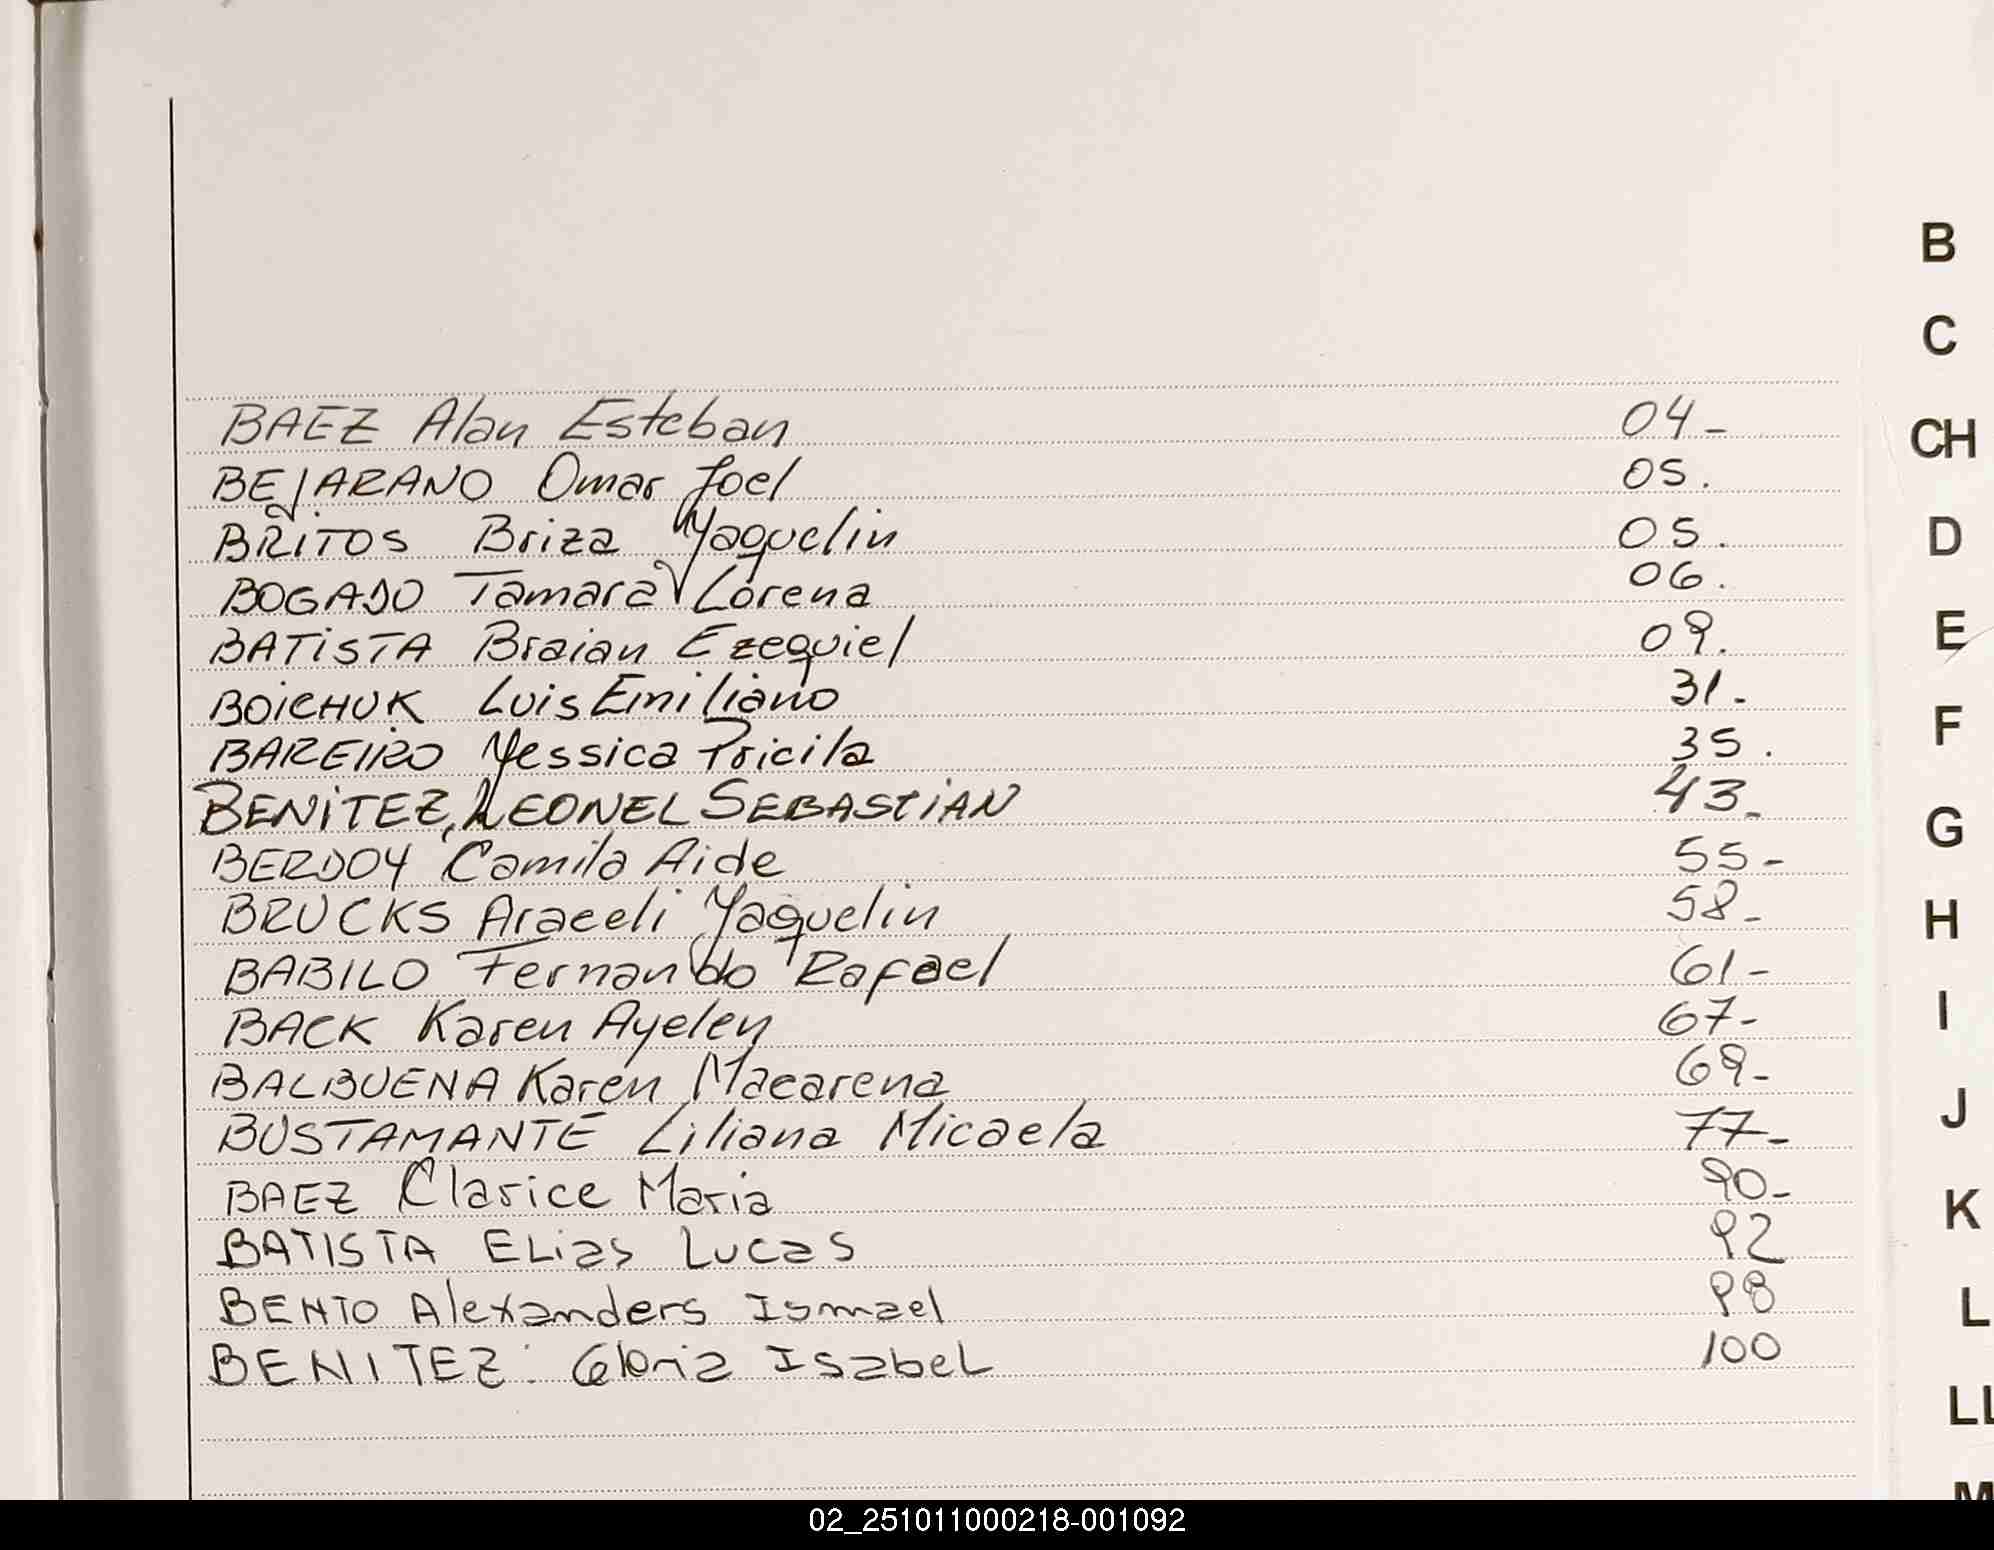 BAEZ Alan Esteban 04-
BEJARANO Omar Joel 05.
BRITOS Briza Yaquelin 05.
BOGADO Tamara Lorena 06.
BATiSTA Braian Ezequiel 09.
BOiCHUK Luis Emiliano 31-
BAREIRO Yessica Pricila 35.
BENiTEZ, LEONEL SEBAStiAN 43-
BERDOY Camila Aide 55-
BRUCKS Araceli Yaquelin 58-
BABILO Fernando Rafael 61-
BACK Karen Ayelen 67-
BALBUENA Karen Macarena 69-
BUSTAMANTE Liliana Micaela 77-
BAEZ Clarice Maria 90-
BATISTA ELias Lucas 92
BENTO Alexanders Ismael 98
BENITEZ: Gloria IsabeL 100
B
C
CH
D
E
F
G
H
I
J
K
L
LL
M
02_251011000218-001092